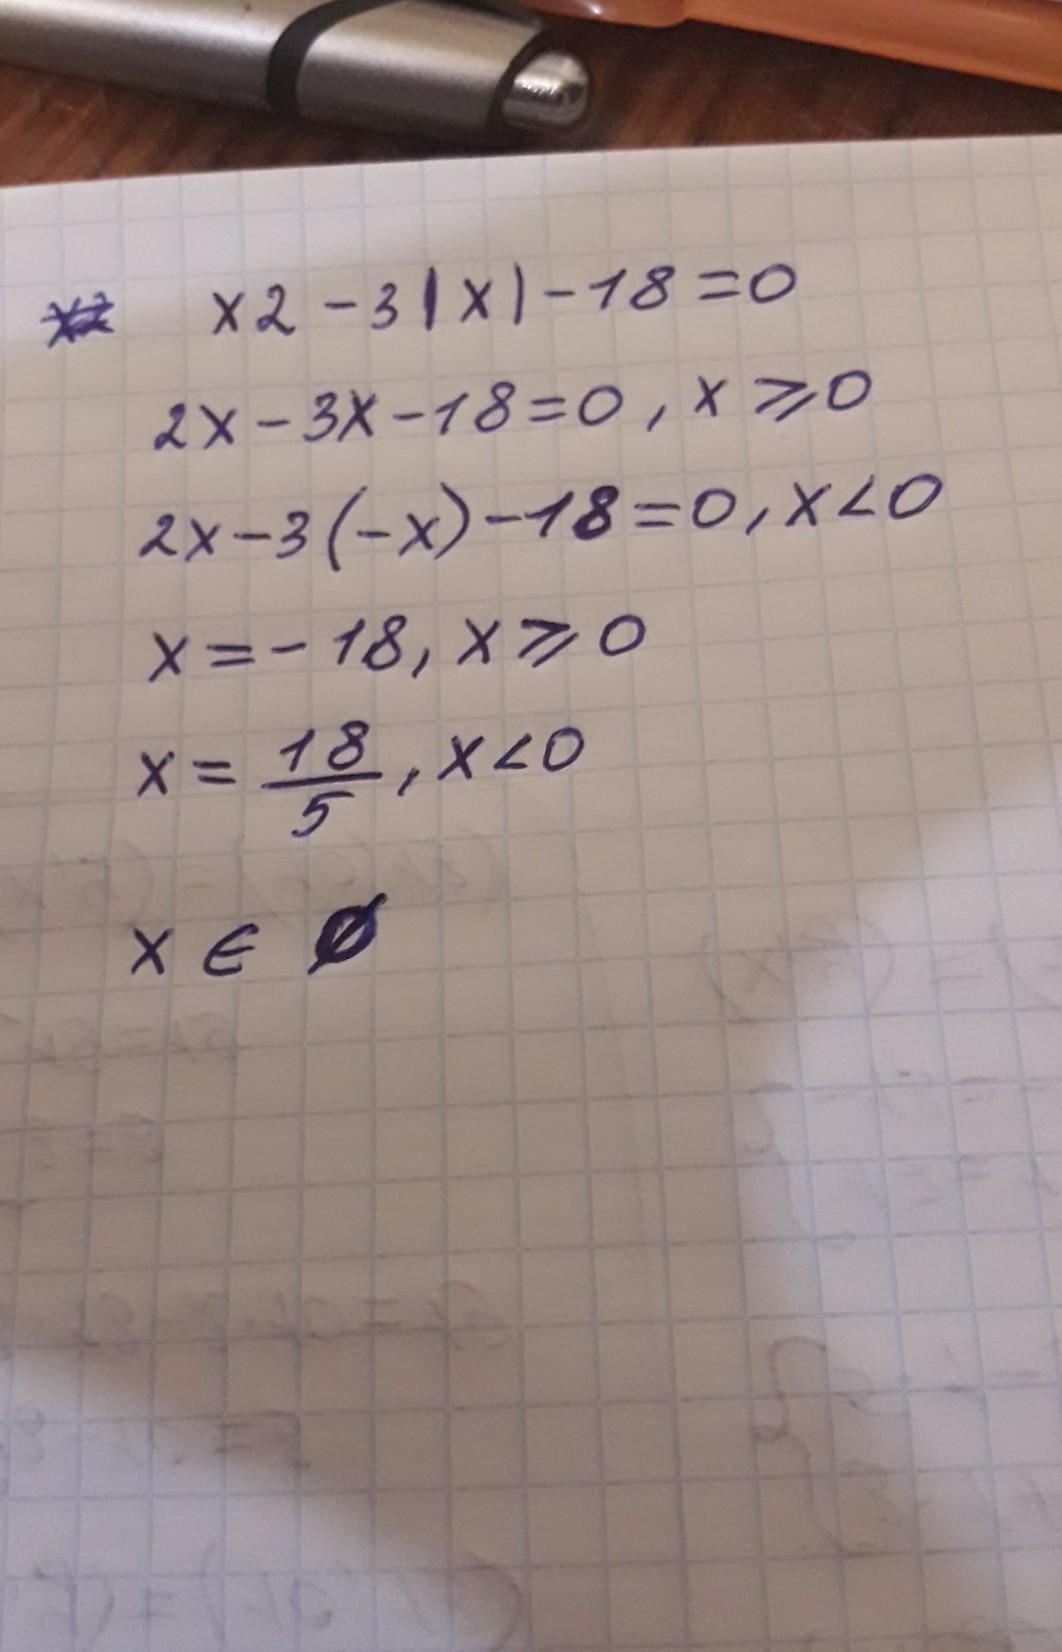 x2 -3|x|-18=0
2x-3x-18=0, x⩾0
2x-3(-x)-18=0, x<0
x=-18, x⩾0
x=18/5, x<0
x∈ Ø